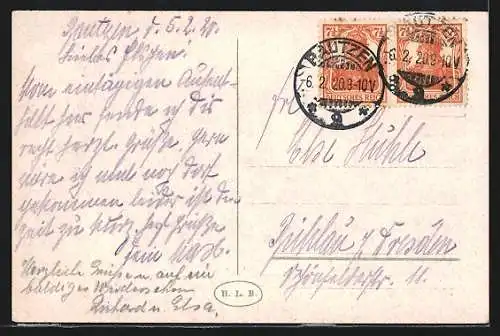 Bautzen d. 5.2.20.
Liebes Elschen!
Vom eintägigen Aufent-
halt hier sende ich die
recht herzl. Grüße. Gern
wäre ich mal nach dort
gekommen leider ist die
Zeit zu kurz. Herz. Grüße
Dein
Herzliche Grüße u. auf ein
baldiges Wiedersehen
Richard u. Elsa.
R. L. B.
7½ 7½
DEUTSCHES REICH
BAUTZEN
6.2.20.9-10V
BAUTZEN
6.2.20.9-10V
Frl.
Else Kühle
Bühlau b/Dresden
Schönfelderstr. 11.